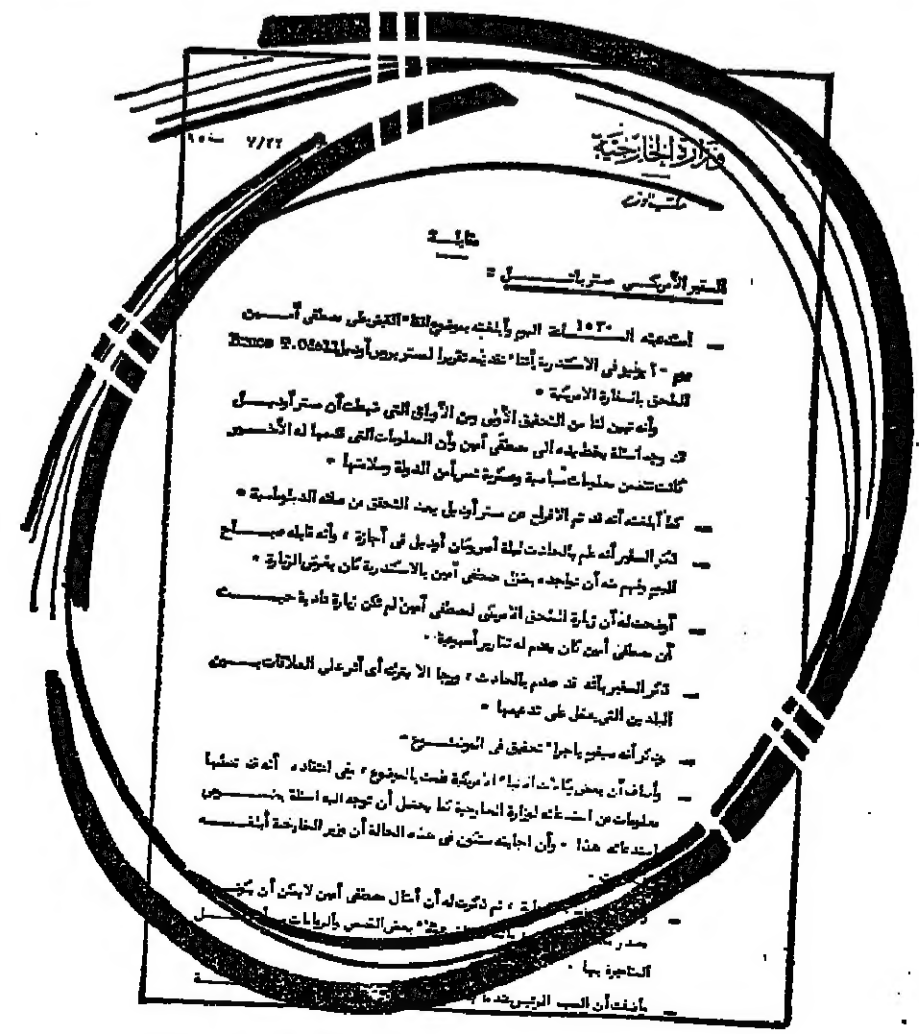 ٧/٢٢ سنة ٦٥
وزارة الخارجية
مكتب الوزير
مقابلة
السفير الأمريكي مستر باتل :
— استدعيته الساعة ١٥٣٠ اليوم وأبلغته بموضوع القاء القبض على مصطفى أمين
يوم في الاسكندرية أثناء تقديمه تقريرا لمستر بروس أوديل Bruce T. Odell
الملحق بالسفارة الامريكية .
وأنه تبين لنا من التحقيق الأولى ومن الأوراق التي ضبطت أن مستر أوديل
قد وجه أسئلة بخط يده الى مصطفى أمين وأن المعلومات التي قدمها له الأخير
كانت تتضمن معلومات سياسية وعسكرية تمس أمن الدولة وسلامتها .
— كما أبلغته أنه قد تم الافراج عن مستر أوديل بعد التحقق من صفته الدبلوماسية .
— ذكر السفير أنه علم بالحادث ليلة أمس وكان أوديل في أجازة ، وأنه قابله صباح
اليوم وفهم منه أن تواجده بمنزل مصطفى أمين بالاسكندرية كان بغرض الزيارة .
— أوضحت له أن زيارة الملحق الأمريكي لمصطفى أمين لم تكن زيارة عادية حيث
أن مصطفى أمين كان يقدم له تقارير أسبوعية .
— ذكر السفير بأنه قد صدم بالحادث ، ورجا الا يترك أى أثر على العلاقات بين
البلدين التي يعمل على تدعيمها .
— وذكر أنه سيقوم باجراء تحقيق في الموضوع .
— وأضاف أن بعض وكالات الانباء الامريكية علمت بالموضوع ، وفي اعتقاده أنه قد تصلها
معلومات عن استدعائه لوزارة الخارجية كما يحتمل أن توجه اليه اسئلة بخصوص
استدعائه هذا . وأن اجابته ستكون في هذه الحالة أن وزير الخارجية أبلغه
— ، ثم ذكرت له أن أمثال مصطفى أمين لا يمكن أن يكون
مصدر بعض القصص والروايات
المتاجرة بها .
— وأضفت أن السبب الرئيسي